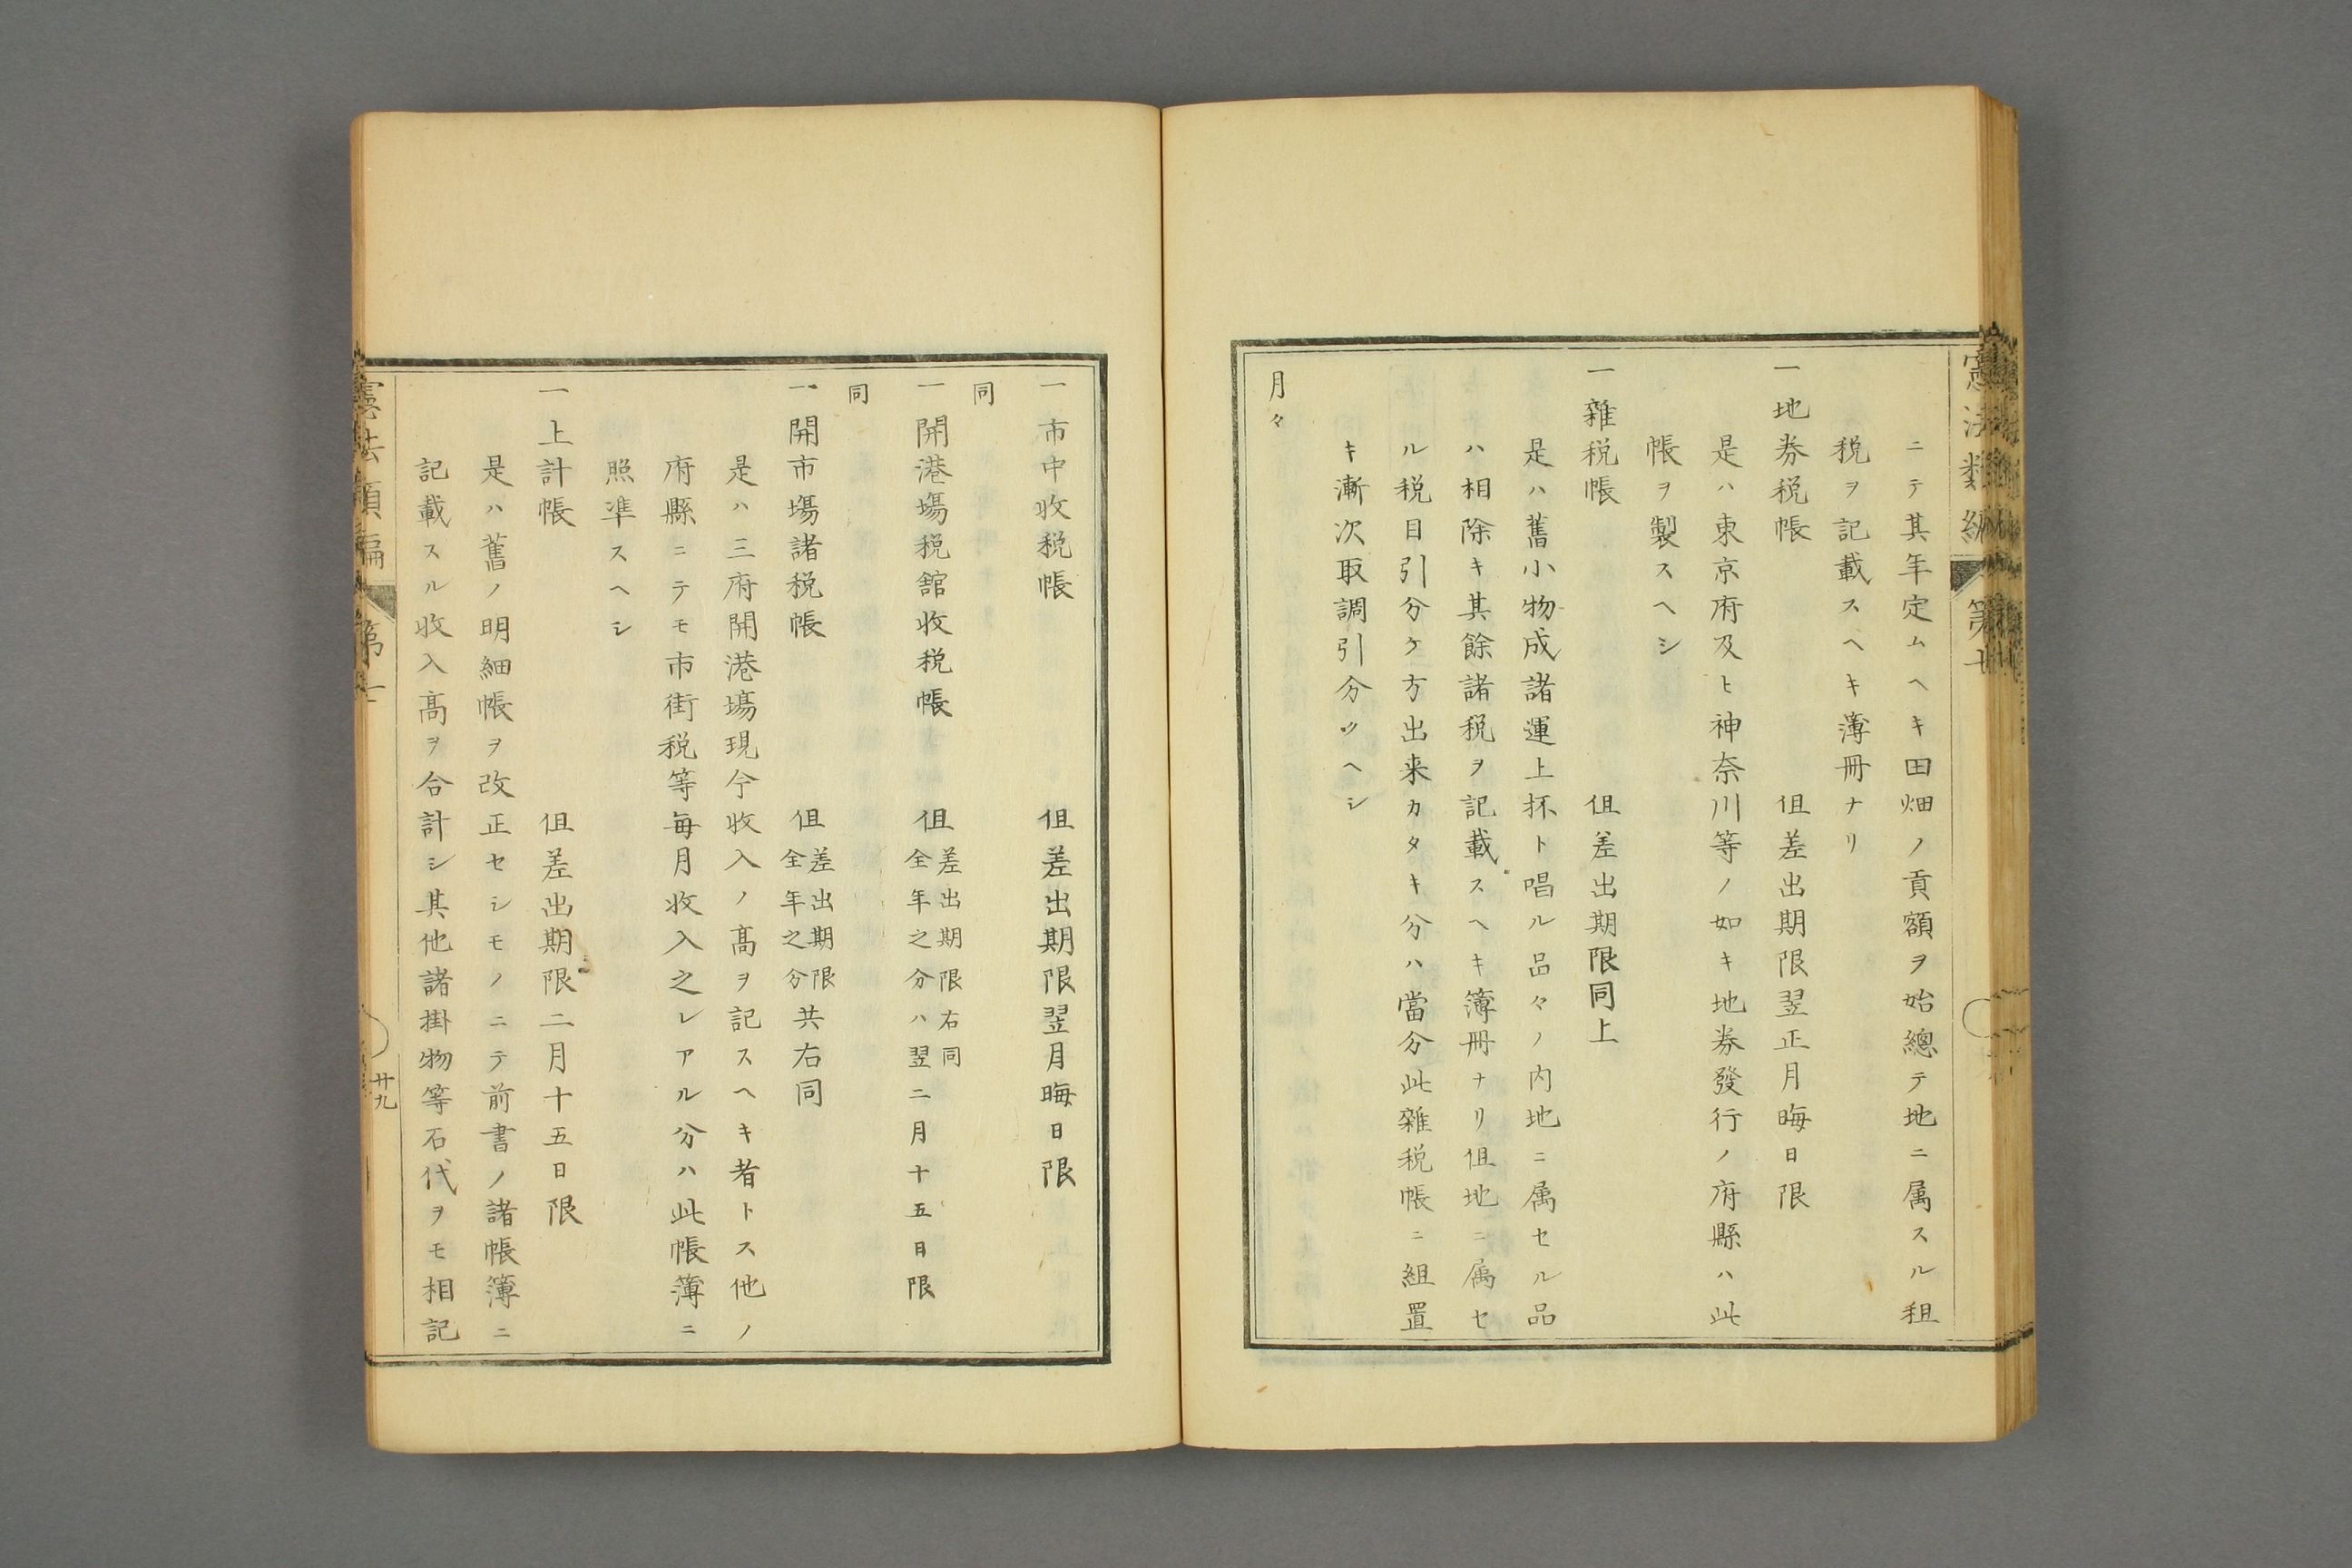 ニテ其年定ムヘキ田畑ノ貢額ヲ始總テ地ニ属スル租
税ヲ記載スヘキ薄冊ナリ
一地券税帳 但差出期限翌正月晦日限
是ハ東京府及ヒ神奈川等ノ如キ地券發行ノ府縣ハ此
帳ヲ製スヘシ
一雜税帳 但差出期限同上
是ハ舊小物成諸運上抔ト唱ル品々ノ内地ニ属セル品
ハ相除キ其餘諸税ヲ記載スヘキ簿冊ナリ但地ニ属セ
ル税目引分ケ方出来カタキ分ハ當分此雜税帳ニ組置
キ漸次取調引分ツヘシ
月々
一市中收税帳 但差出期限翌月晦日限
同
一開港場税舘收税帳 但差出期限右同
全年之分ハ翌二月十五日限
同
一開市場諸税帳 但差出期限
全年之分共右同
是ハ三府開港場現今收入ノ高ヲ記スヘキ者トス他ノ
府縣ニテモ市街税等毎月收入之レアル分ハ此帳簿ニ
照準スヘシ
一上計帳 但差出期限二月十五日限
是ハ舊ノ明細帳ヲ改正セシモノニテ前書ノ諸帳簿ニ
記載スル收入高ヲ合計シ其他諸掛物等石代ヲモ相記
憲法類編 第十
廿九